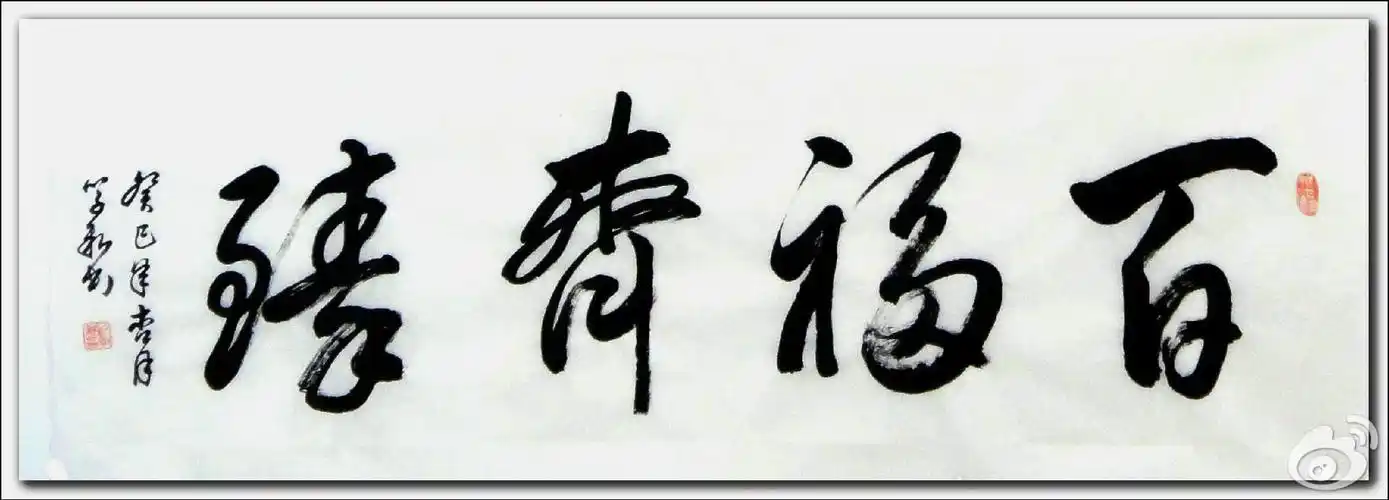 百福齊臻
癸巳年杏月